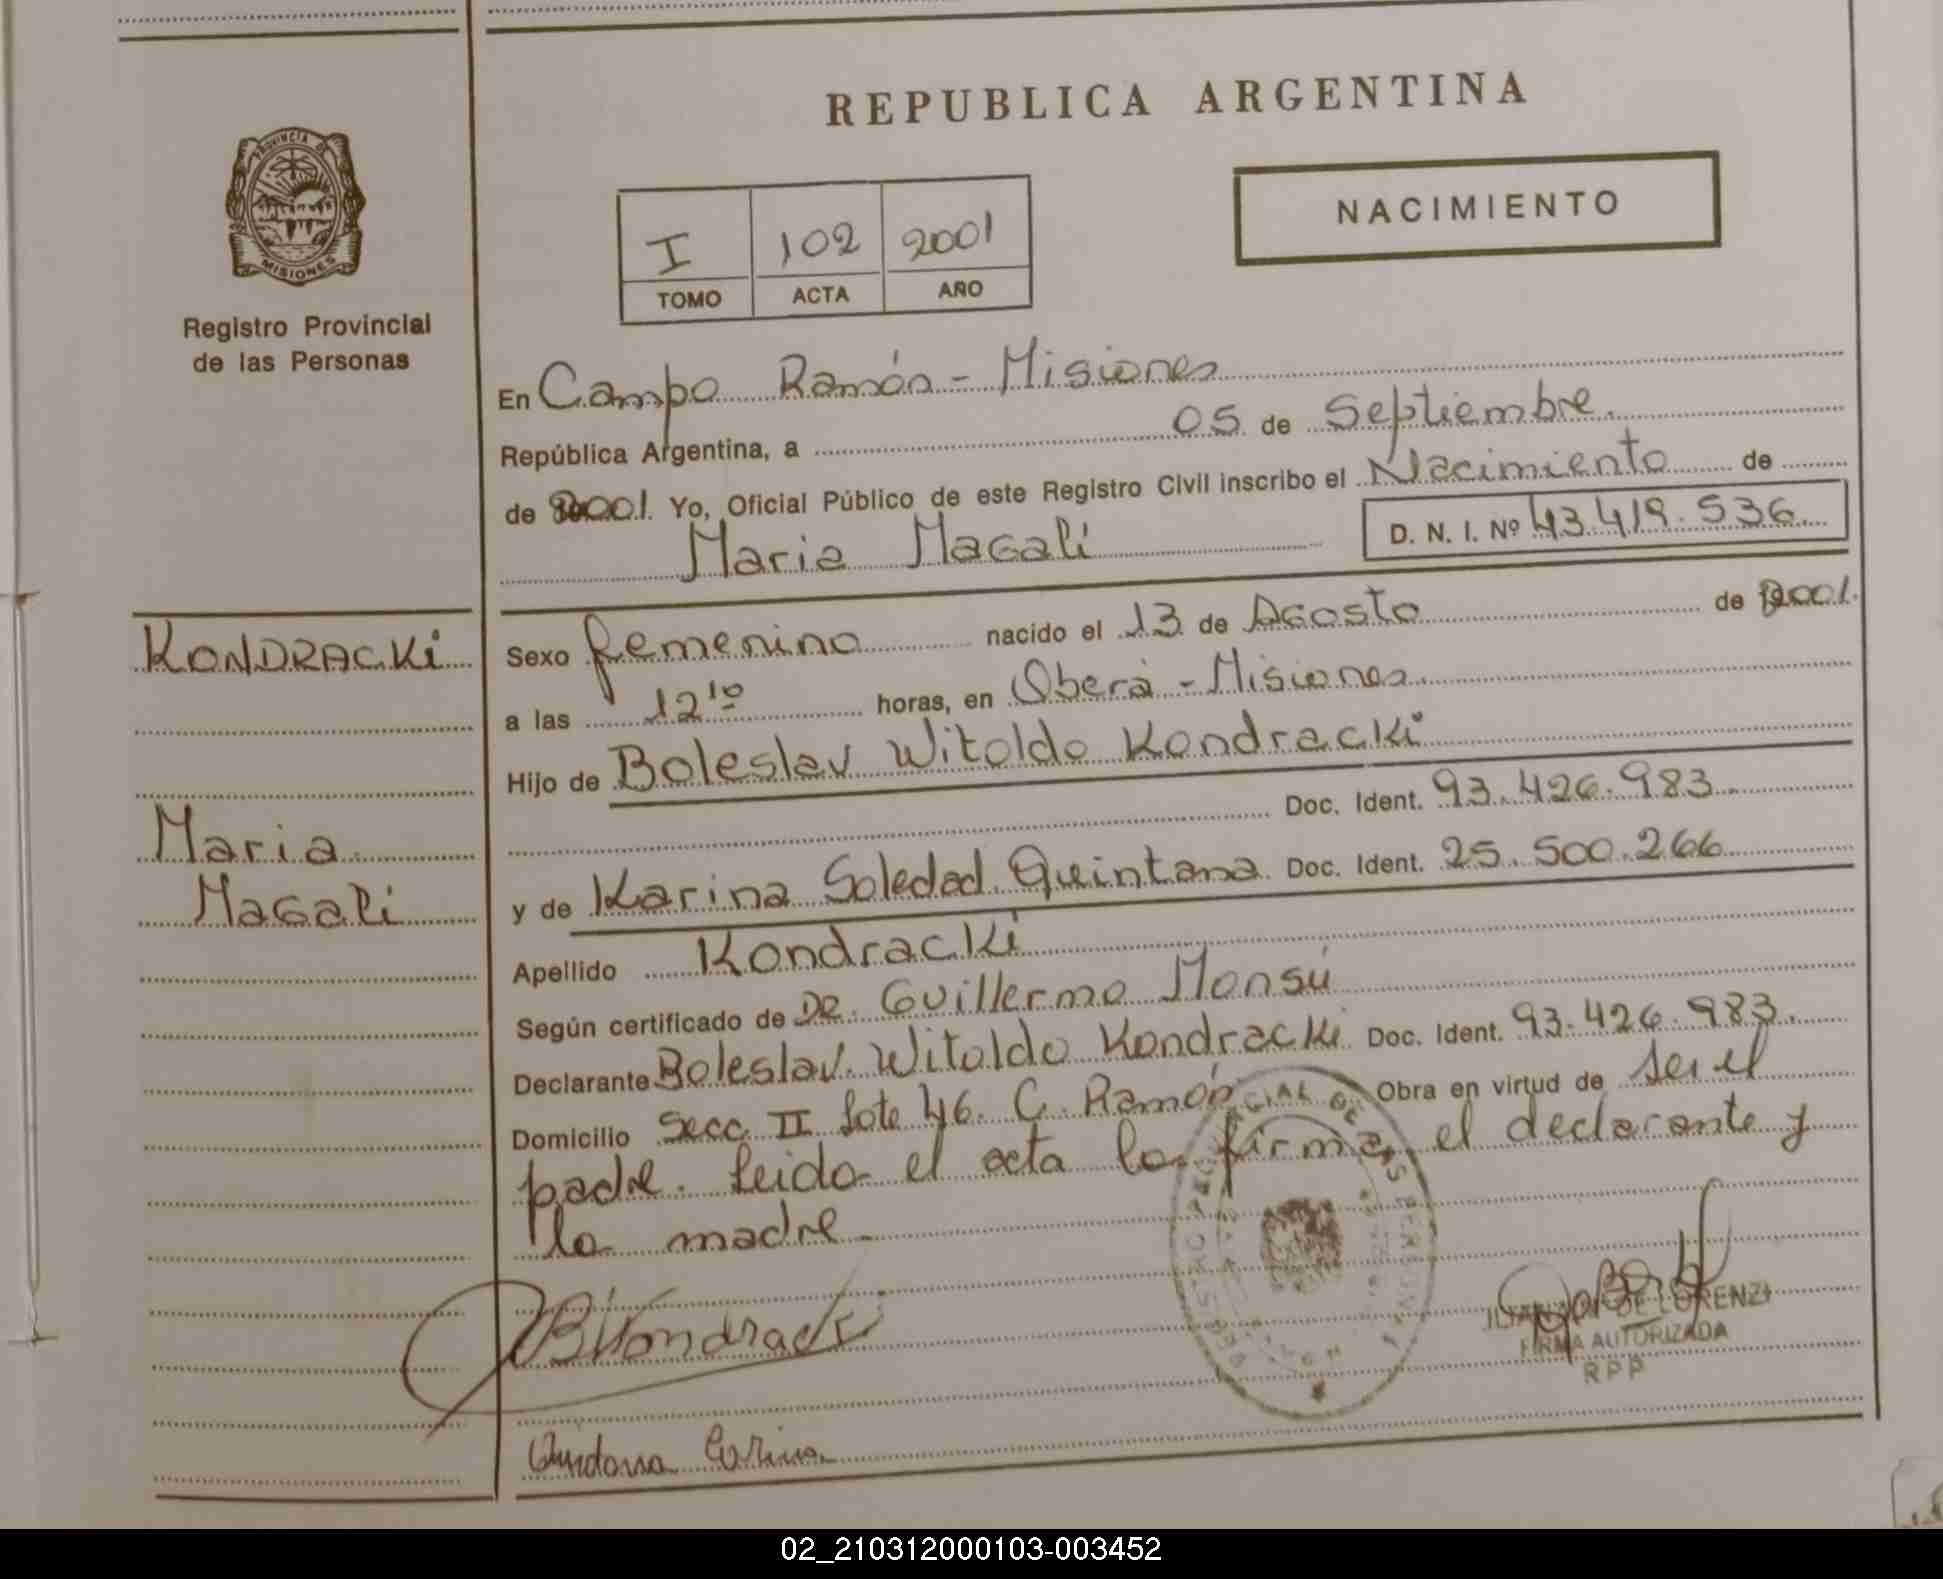 REPUBLICA ARGENTINA
PROVINCIA DE
MISIONES
Registro Provincial
de las Personas
I 102 2001
TOMO ACTA AÑO
NACIMIENTO
En Campo Ramón - Misiones
República Argentina, a 05 de Septiembre
de 2001. Yo, Oficial Público de este Registro Civil inscribo el Nacimiento de
Maria Magali D. N. I. Nº 43.419.536
KONDRACKi
Maria
Magali
Sexo femenino nacido el 13 de Agosto de 2001.
a las 12 10 horas, en Oberá - Misiones
Hijo de Boleslav Witoldo Kondracki
Doc. Ident. 93.426.983
y de Karina Soledad Quintana Doc. Ident. 25.500.266
Apellido Kondracki
Según certificado de DR. Guillermo Monsú
Declarante Boleslav Witoldo Kondracki Doc. Ident. 93.426.983.
Domicilio Secc II Lote 46. C. Ramón Obra en virtud de ser el
padre. Leida el acta la firma, el declarante y
la madre.
BKondracki
DE LORENZI
FIRMA AUTORIZADA
R P P
Quintana Carina
02_210312000103-003452